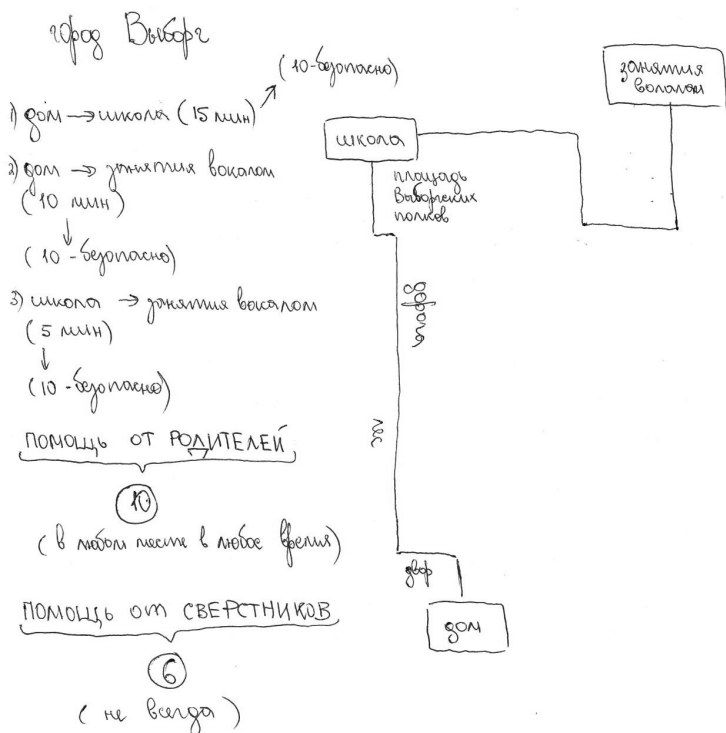 город Выборг
1) дом → школа (15 мин)
(10-безопасно)
2) дом → занятия вокалом
(10 мин)
(10-безопасно)
3) школа → занятия вокалом
(5 мин)
(10-безопасно)
ПОМОЩЬ ОТ РОДИТЕЛЕЙ
10
(в любом месте в любое время)
ПОМОЩЬ от СВЕРСТНИКОВ
6
(не всегда)
занятия
вокалом
школа
площадь
Выборгских
полков
дорога
лес
двор
дом